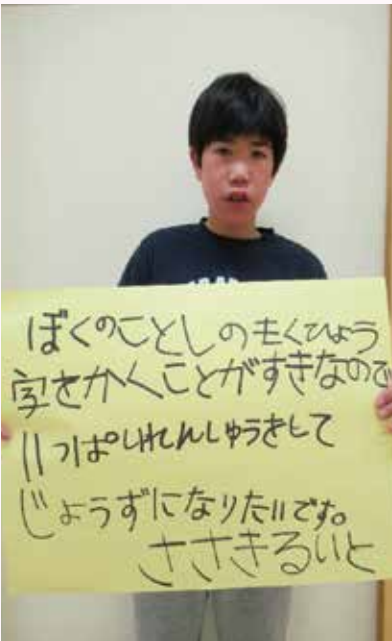 ぼくのことしのもくひょう
字をかくことがすきなので
いっぱいれんしゅうをして
じょうずになりたいです。
ささきるいと